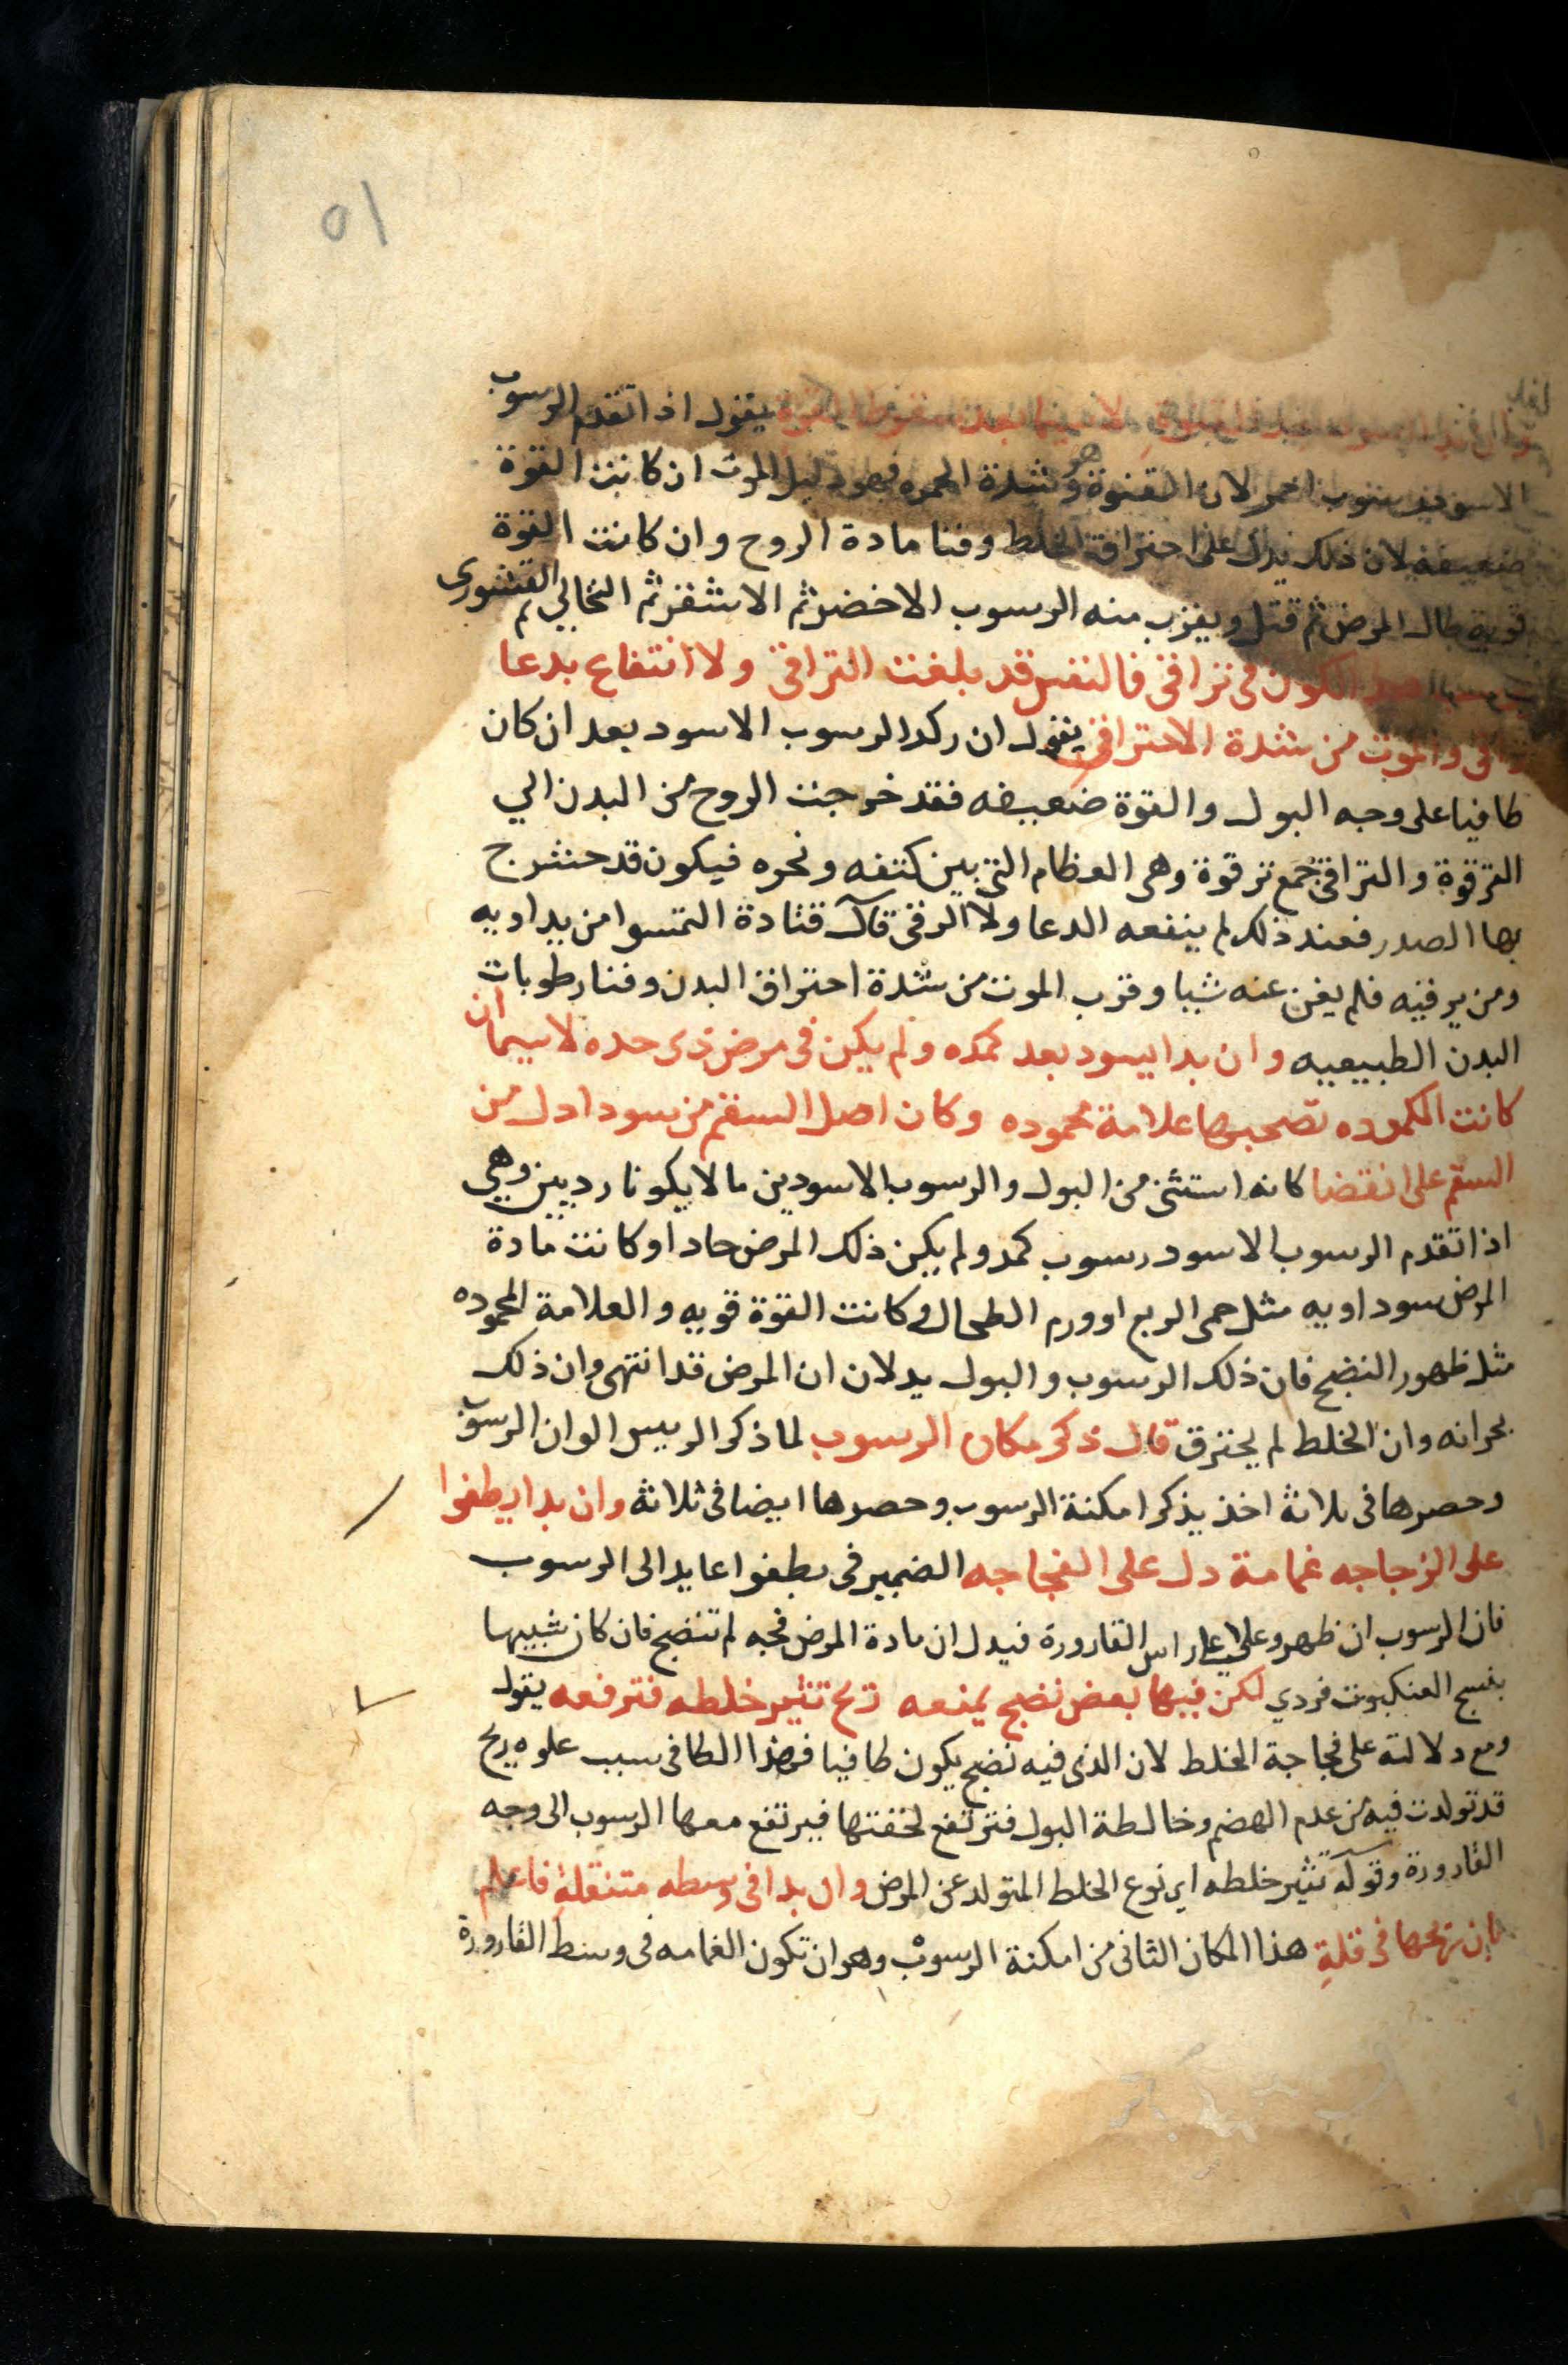 ٥١
يقول اذا تقدم الرسوب
الاسود رسوب احمر لان القنوة هو شدة الحمره فهو دليل الموت ان كانت القوة
ضعيفة لان ذلك يدل على احتراق الخلط وفنا مادة الروح وان كانت القوة
قوية طال المرض ثم قتل ويقرب منه الرسوب الاخضر ثم الاشقر ثم النخالي ثم القشوري
الكون في تراقي فالنفس قد بلغت التراقي ولا انتفاع بدعا
راقي والموت من شدة الاحتراق يقول ان ركد الرسوب الاسود بعد ان كان
طافيا على وجه البول والقوة ضعيفه فقد خرجت الروح من البدن الي
الترقوة والتراقي جمع ترقوة وهي العظام التي بين كتفه ونحره فيكون قد حشرج
بها الصدر فعند ذلك لم ينفعه الدعا ولا الرقى قال قتادة التمسوا من يداويه
ومن يرقيه فلم يغن عنه شيا وقرب الموت من شدة احتراق البدن وفنا رطوبات
البدن الطبيعيه وان بدا يسود بعد كمده ولم يكن في مرض ذي حده لا سيما ان
كانت الكموده تصحبها علامة محموده وكان اصل السقم من سودا دل من
السقم على انقضا كانه استثنى من البول والرسوب الاسودين ما لا يكونا رديين وهي
اذا تقدم الرسوب الاسود رسوب كمد ولم يكن ذلك المرض حادا وكانت مادة
المرض سوداويه مثل حمى الربع او ورم الطحال وكانت القوة قويه والعلامة المحموده
مثل ظهور النضج فان ذلك الرسوب والبول يدلان ان المرض قد انتهى وان ذلك
بحرانه وان الخلط لم يحترق قال ذكر مكان الرسوب لما ذكر الريس الوان الرسوب
وحصرها في ثلاثة اخذ يذكر امكنة الرسوب وحصرها ايضا في ثلاثه وان بدا يطفوا
على الزجاجه غمامة دل على الفجاجه الضمير في يطفوا عايد الى الرسوب
فان الرسوب ان ظهر وعلى على راس القارورة فيدل ان مادة المرض فجه لم تنضج فان كان شبيها
بنسج العنكبوت فردي لكن فيها بعض نضج يمنعه ريح تثير خلطه فترفعه يقول
ومع دلالته على فجاجة الخلط لان الذي فيه نضج يكون طافيا فهذا الطافي سبب علوه ريح
قد تولدت فيه من عدم الهضم وخالطة البول فترتفع لخفتها فيرتفع معها الرسوب الى وجه
القارورة وقوله تثير خلطه اي نوع الخلط المتولد عن المرض وان بدا في وسطه متنقلة فاعلم
بان ريحها في قلة هذا المكان الثاني من امكنة الرسوب وهو ان تكون الغمامه في وسط القارورة